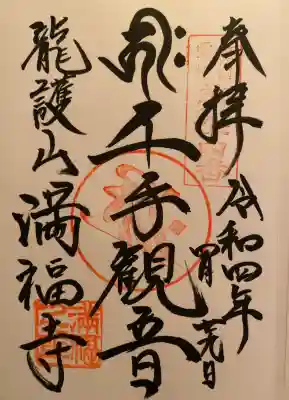 奉拝 令和四年四月廿九日
千手観音
龍護山 満福寺